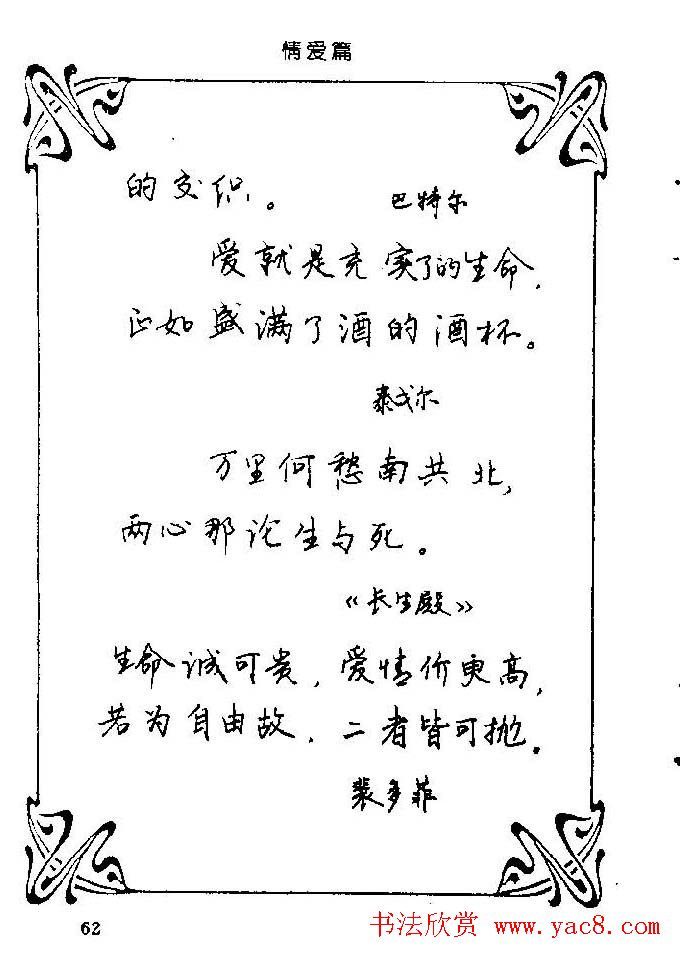 情爱篇
的交织。
巴特尔
爱就是充实了的生命，
正如盛满了酒的酒杯。
泰戈尔
万里何愁南共北，
两心那论生与死。
《长生殿》
生命诚可贵，爱情价更高，
若为自由故，二者皆可抛。
裴多菲
62
书法欣赏 www.yac8.com